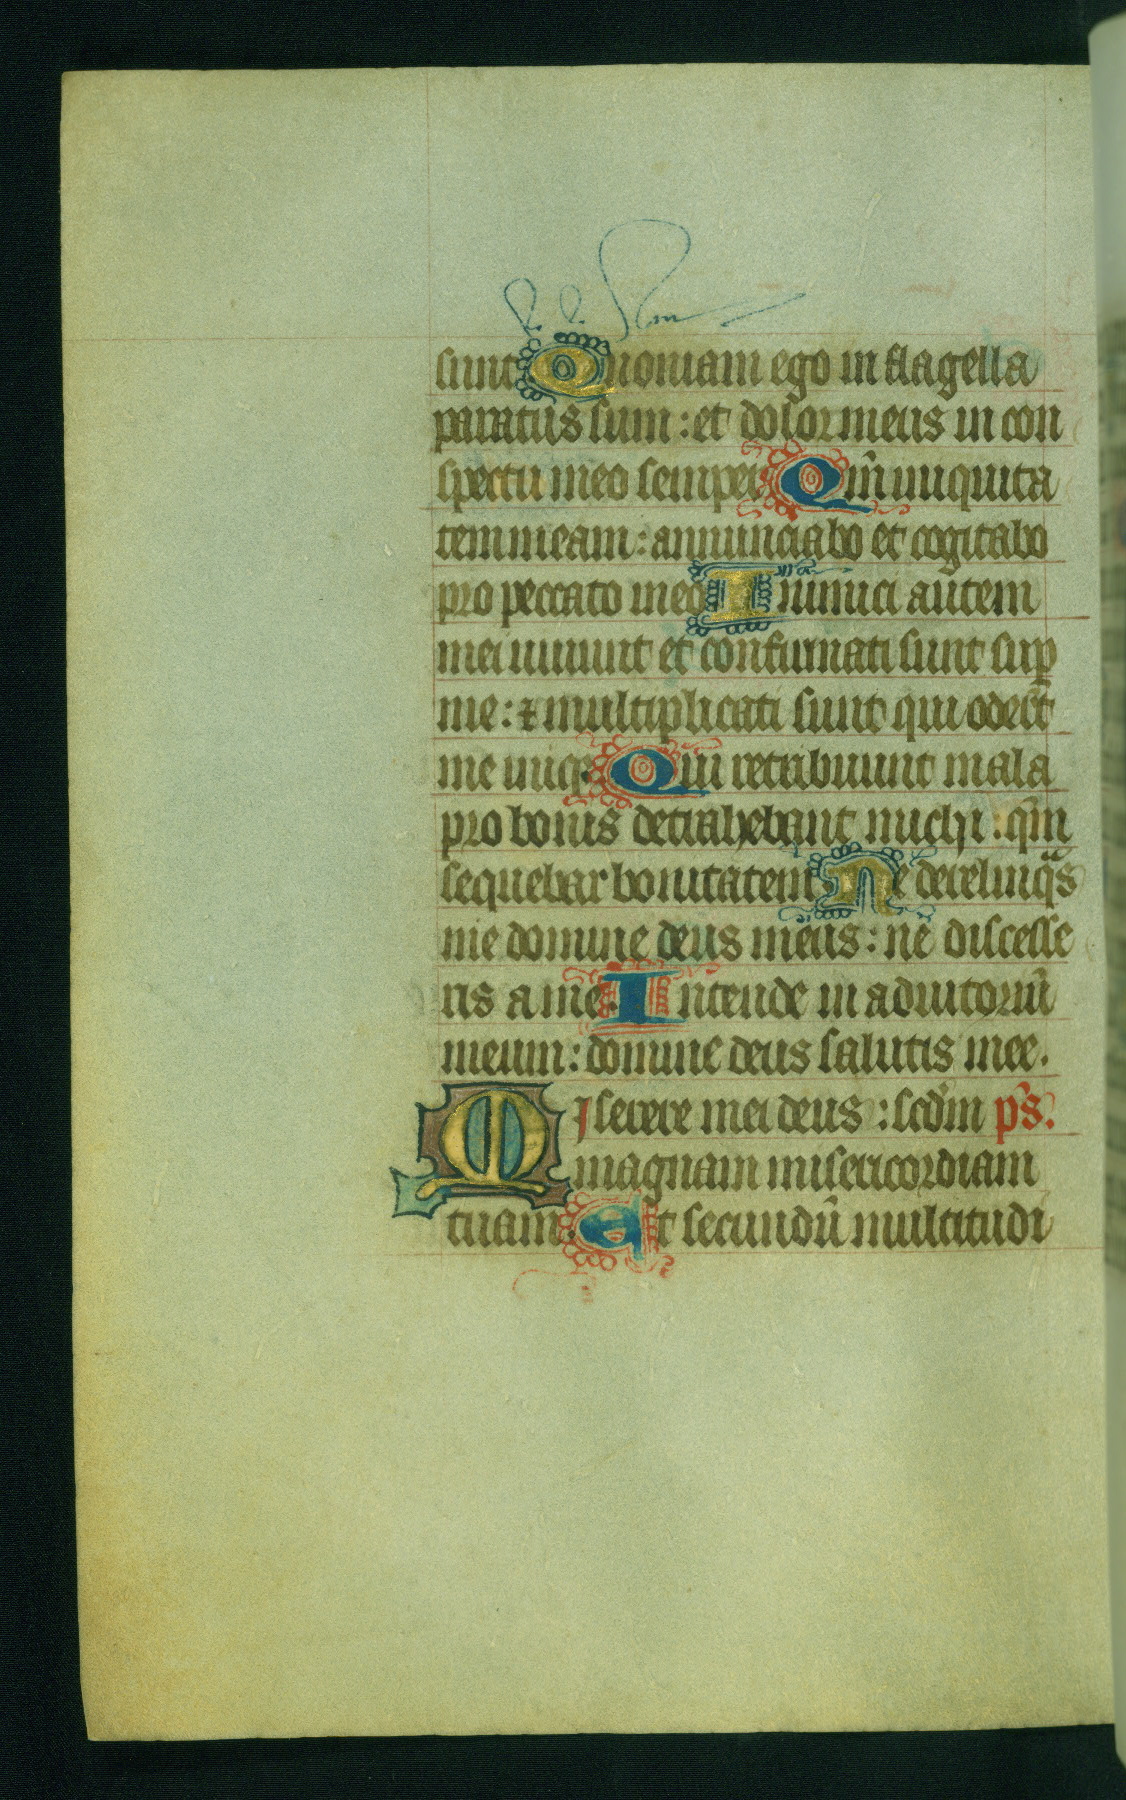 sunt Quoniam ego in flagella
paratus sum : et dolor meus in con
spectu meo semper Qm̄ iniquita
tem meam : annunciabo et cogitabo
pro peccato meo Inimici autem
mei uiuunt et confirmati sunt sup̱
me : ⁊ multiplicati sunt qui oder̄t
me iniq̱ Qui retribuunt mala
pro bonis detrahebant michi : qm̄
sequebar bonitatem Ne derelinqᵃs
me domine deus meus : ne discesse
ris a me Intende in adiutoriū
meum : domine deus salutis mee .
Miserere mei deus : scd̄m ps̄.
magnam misericordiam
tuam . Et secundū multitudi